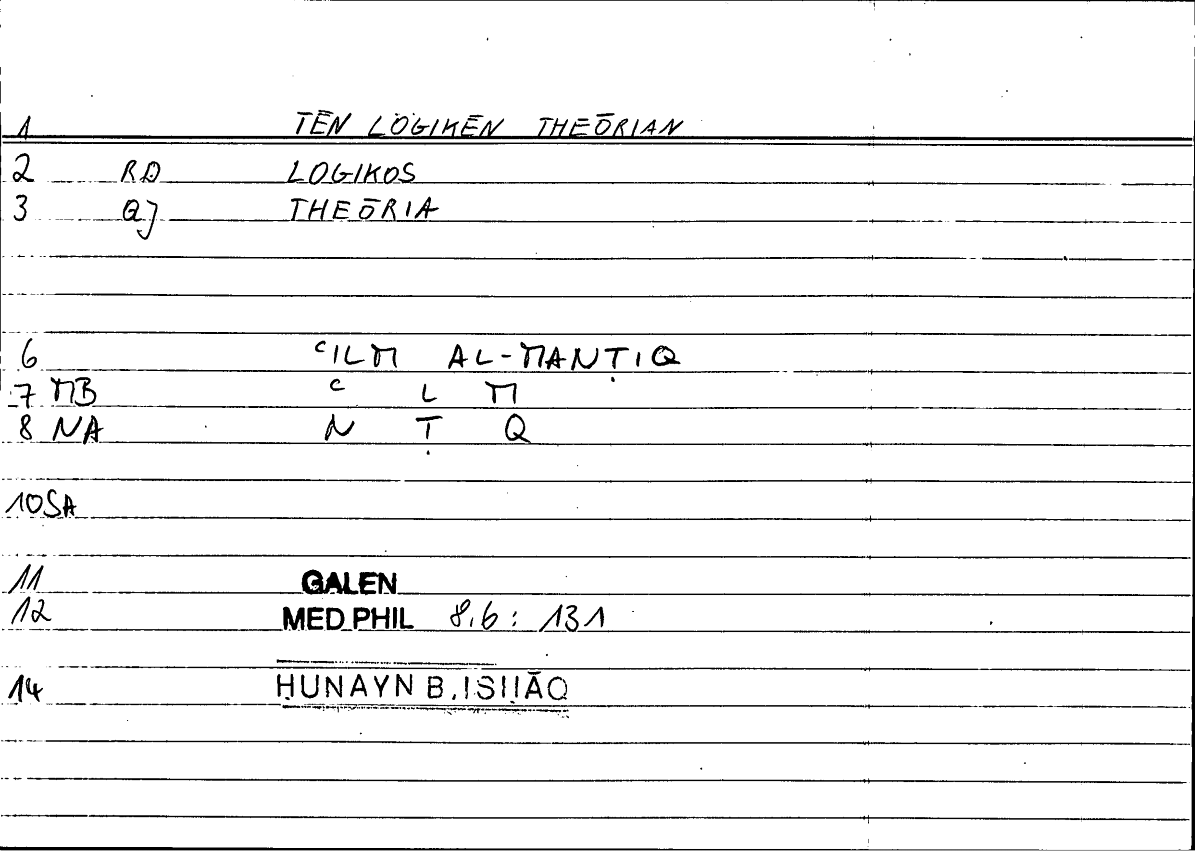 1 TĒN LOGIKĒN THEŌRIAN
2 RD LOGIKOS
3 QJ THEŌRIA
6 ʿILM AL-MANṬIQ
7 MB ʿ L M
8 NA N Ṭ Q
10 SA
11 GALEN
12 MED PHIL 8,6 : 131
14 ḤUNAYN B. ISḤĀQ